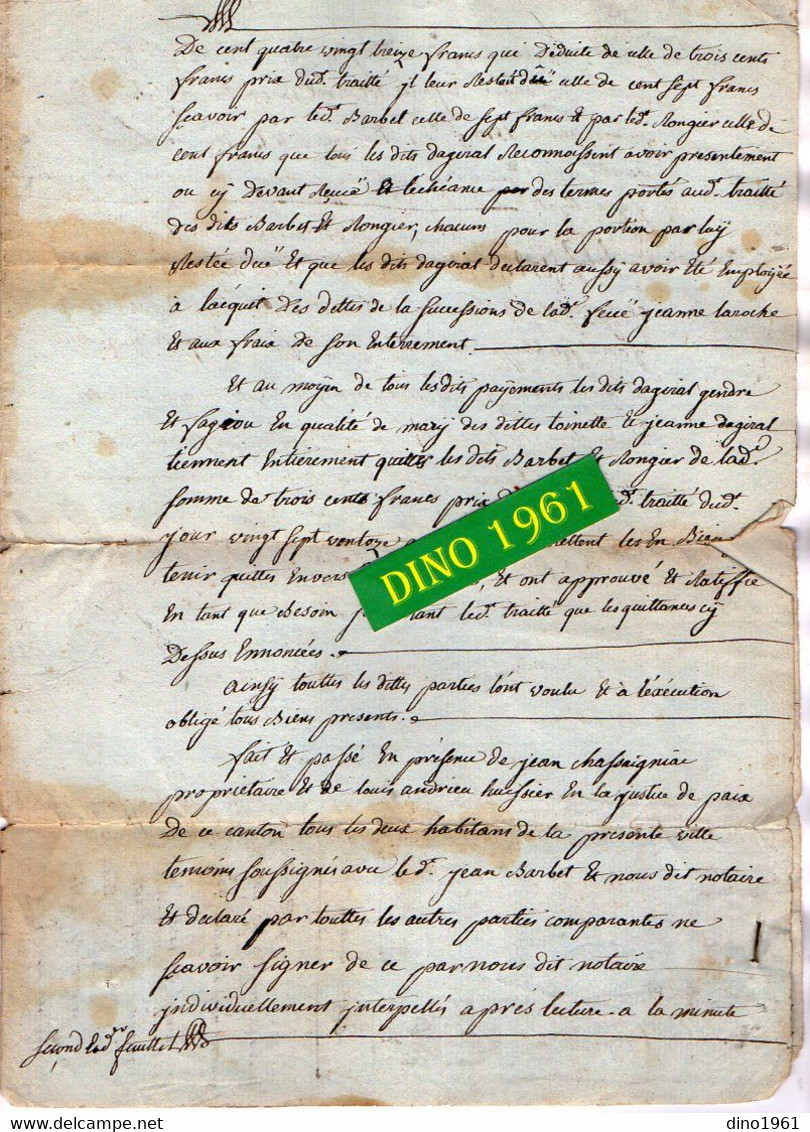 De cent quatre vingt treize francs qui Déduite de celle de trois cents
francs prix dud. traitté jl leur Restoit düe celle de cent sept francs
sçavoir par led. Barbet celle de sept francs Et par led. Rongier celle de
cent francs que tous les dits dagiral Reconnoissent avoir presentement
ou cÿ devant Reçüe Et lechéance des termes portés aud. traitté
des dits Barbet Et Rongier, chacun pour la portion par luÿ
Restée düe Et que les dits dagiral declarent aussÿ avoir Eté Employée
à lacquit Des dettes de la succession de lad. feüe jeanne laroche
Et aux fraix de son Enterrement.
Et au moÿen de tous lesdits paÿements les dits dagiral gendre
Et fageou En qualité de marÿ des dittes toinette Et jeanne dagiral
tiennent Entierement quittes les dits Barbet Et Rongier de lad.
somme de trois cents francs prix traitté dud.
jour vingt sept ventoze les En Bien
tenir quittes Envers Et ont approuvé Et Ratiffié
En tant que Besoin tant led. traitté que les quittances cÿ
Dessus Ennoncées.
Ainsÿ touttes les dittes parties l'ont voulu Et à l'éxécution
obligé tous Biens presents.
fait Et passé En présence de jean chassaigniac
proprietaire Et de louis andrieu huissier En la justice de paix
De ce canton tous les deux habitans de la presente ville
temoins soussignés avec led. jean Barbet Et nous dit notaire
Et declaré par touttes les autres parties comparantes ne
sçavoir signer de ce par nous dit notaire
jndividuellement jnterpellés après lecture a la minute
second feuillet
DINO 1961
dino1961